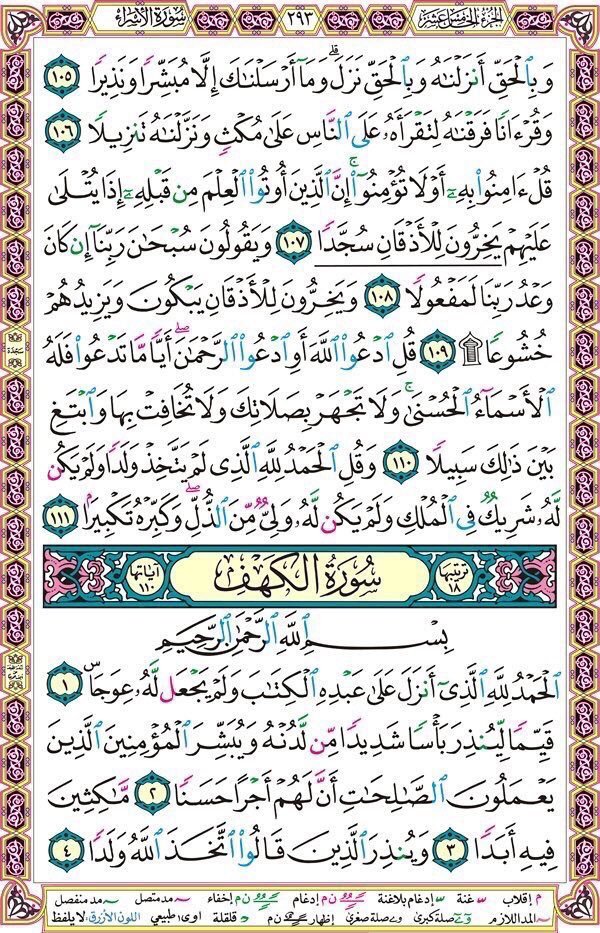 الجزء الخامس عشر ٢٩٣ سورة الإسراء
وَبِٱلْحَقِّ أَنزَلْنَٰهُ وَبِٱلْحَقِّ نَزَلَ ۗ وَمَآ أَرْسَلْنَٰكَ إِلَّا مُبَشِّرًا وَنَذِيرًا ١٠٥
وَقُرْءَانًا فَرَقْنَٰهُ لِتَقْرَأَهُۥ عَلَى ٱلنَّاسِ عَلَىٰ مُكْثٍ وَنَزَّلْنَٰهُ تَنزِيلًا ١٠٦
قُلْ ءَامِنُوا۟ بِهِۦٓ أَوْ لَا تُؤْمِنُوٓا۟ ۚ إِنَّ ٱلَّذِينَ أُوتُوا۟ ٱلْعِلْمَ مِن قَبْلِهِۦٓ إِذَا يُتْلَىٰ
عَلَيْهِمْ يَخِرُّونَ لِلْأَذْقَانِ سُجَّدًا ١٠٧ وَيَقُولُونَ سُبْحَٰنَ رَبِّنَآ إِن كَانَ
وَعْدُ رَبِّنَا لَمَفْعُولًا ١٠٨ وَيَخِرُّونَ لِلْأَذْقَانِ يَبْكُونَ وَيَزِيدُهُمْ
خُشُوعًا ۩ ١٠٩ قُلِ ٱدْعُوا۟ ٱللَّهَ أَوِ ٱدْعُوا۟ ٱلرَّحْمَٰنَ ۖ أَيًّا مَّا تَدْعُوا۟ فَلَهُ
ٱلْأَسْمَآءُ ٱلْحُسْنَىٰ ۚ وَلَا تَجْهَرْ بِصَلَاتِكَ وَلَا تُخَافِتْ بِهَا وَٱبْتَغِ
بَيْنَ ذَٰلِكَ سَبِيلًا ١١٠ وَقُلِ ٱلْحَمْدُ لِلَّهِ ٱلَّذِى لَمْ يَتَّخِذْ وَلَدًا وَلَمْ يَكُن
لَّهُۥ شَرِيكٌ فِى ٱلْمُلْكِ وَلَمْ يَكُن لَّهُۥ وَلِىٌّ مِّنَ ٱلذُّلِّ ۖ وَكَبِّرْهُ تَكْبِيرًۢا ١١١
ترتيبها ١٨ سورة الكهف آياتها ١١٠
بِسْمِ ٱللَّهِ ٱلرَّحْمَٰنِ ٱلرَّحِيمِ
ٱلْحَمْدُ لِلَّهِ ٱلَّذِىٓ أَنزَلَ عَلَىٰ عَبْدِهِ ٱلْكِتَٰبَ وَلَمْ يَجْعَل لَّهُۥ عِوَجَاۜ ١
قَيِّمًا لِّيُنذِرَ بَأْسًا شَدِيدًا مِّن لَّدُنْهُ وَيُبَشِّرَ ٱلْمُؤْمِنِينَ ٱلَّذِينَ
يَعْمَلُونَ ٱلصَّٰلِحَٰتِ أَنَّ لَهُمْ أَجْرًا حَسَنًا ٢ مَّٰكِثِينَ
فِيهِ أَبَدًا ٣ وَيُنذِرَ ٱلَّذِينَ قَالُوا۟ ٱتَّخَذَ ٱللَّهُ وَلَدًا ٤
سجدة
م إقلاب غنة إدغام بلاغنة ن م إدغام ن م إخفاء مد متصل مد منفصل
المد اللازم صلة كبرى صلة صغرى إظهار ن م قلقلة اوى طبيعي اللون الأزرق: لا يلفظ